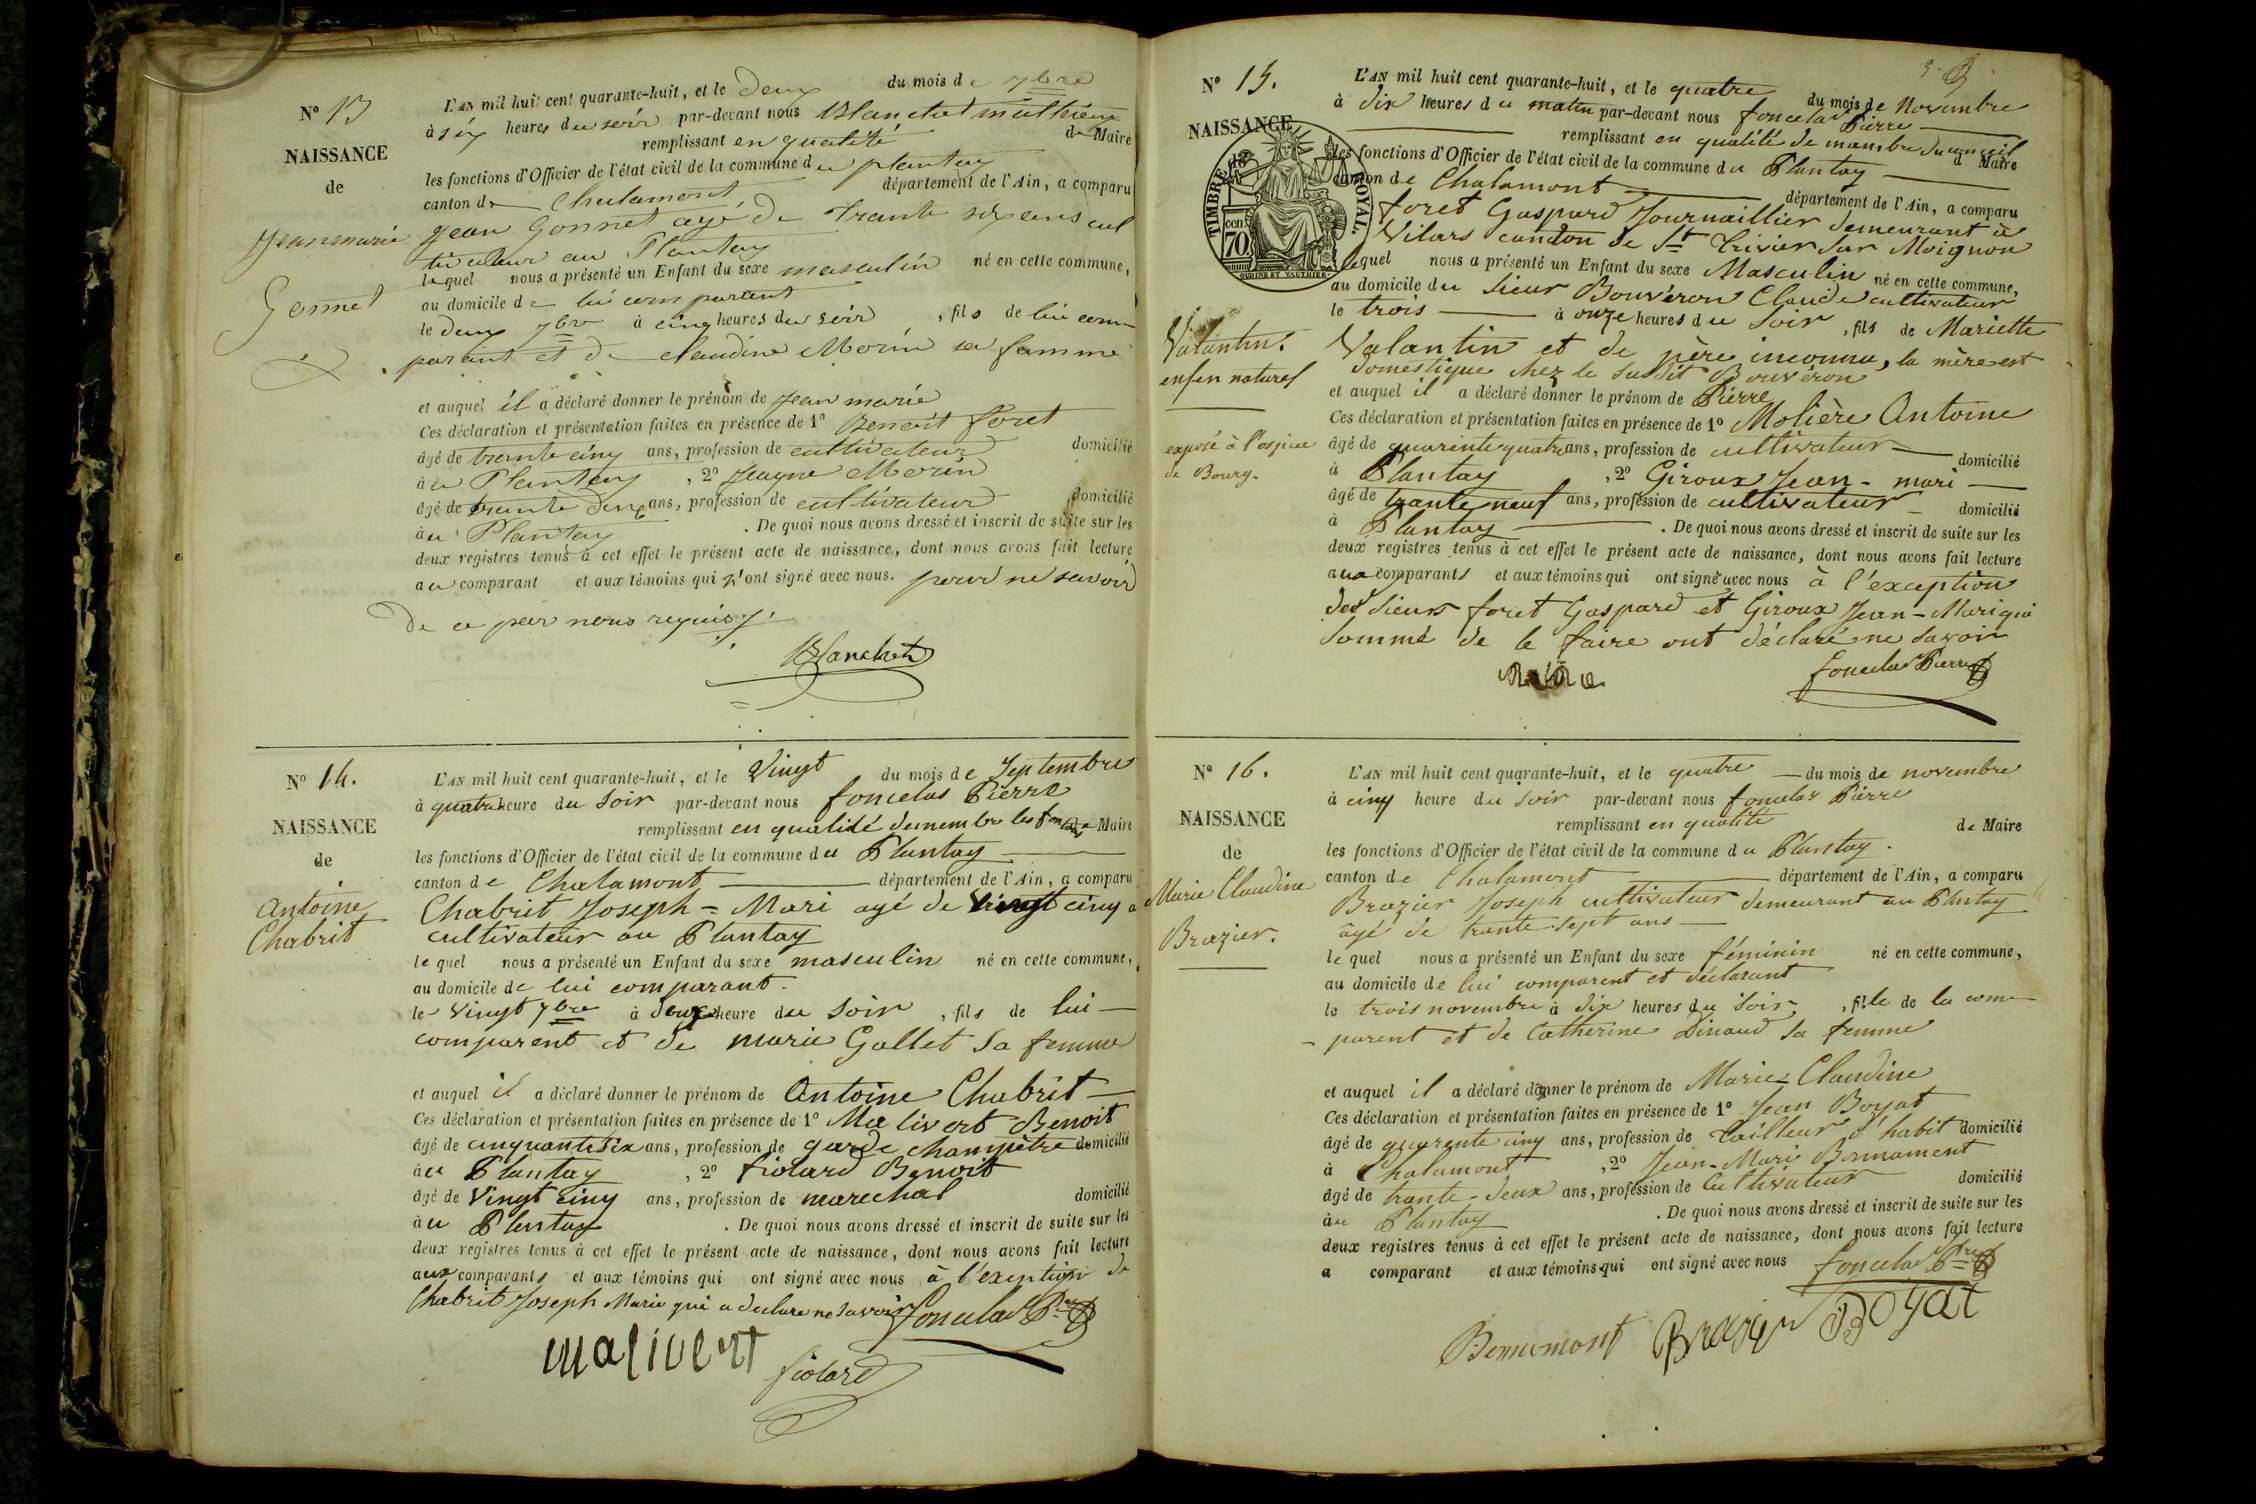 N° 13
NAISSANCE
de
Jeanmarie
Gonnet
L'AN mil huit cent quarante-huit, et le deux du mois de 7bre
à six heures du soir par-devant nous Blanchet mathieu
remplissant en qualité de Maire
les fonctions d'Officier de l'état civil de la commune du plantay
canton de Chalamont département de l'Ain, a comparu
Jean Gonnet agé de trante six ans cul
tivateur au Plantay
lequel nous a présenté un Enfant du sexe masculin né en cette commune,
au domicile de lui comparant
le deux 7bre à cinq heures du soir, fils de lui com-
parant et de claudine Morin sa famme
et auquel il a déclaré donner le prénom de Jean marie
Ces déclaration et présentation faites en présence de 1° Benoit foret
âgé de trante cinq ans, profession de cultivateur domicilié
au Plantay, 2° Morin
âgé de trante deux ans, profession de cultivateur domicilié
au Plantay. De quoi nous avons dressé et inscrit de suite sur les
deux registres tenus à cet effet le présent acte de naissance, dont nous avons fait lecture
au comparant et aux témoins qui n'ont signé avec nous. pour ne savoir
de ce par nous requis
Blanchet
N° 14.
NAISSANCE
de
Antoine
Chabrit
L'AN mil huit cent quarante-huit, et le Vingt du mois de Septembre
à quatre heure du soir par-devant nous foncelas Pierre
remplissant en qualité demembre les Maire
les fonctions d'Officier de l'état civil de la commune du Plantay
canton de Chalamont département de l'Ain, a comparu
Chabrit Joseph = Mari agé de vingt cinq a
cultivateur au Plantay
lequel nous a présenté un Enfant du sexe masculin né en cette commune,
au domicile de lui comparant.
le Vingt 7bre à deux heure du soir, fils de lui
comparent et de marie Gallet sa femme
et auquel il a déclaré donner le prénom de Antoine Chabrit
Ces déclaration et présentation faites en présence de 1° Malivert Benoit
âgé de cinquantesix ans, profession de garde champêtre domicilié
au Plantay, 2° fiolard Benoit
âgé de Vingt cinq ans, profession de marechal domicilié
au Plantay. De quoi nous avons dressé et inscrit de suite sur les
deux registres tenus à cet effet le présent acte de naissance, dont nous avons fait lecture
aux comparants et aux témoins qui ont signé avec nous à l'exeption de
Chabrit Joseph Marie qui a declare ne savoir foncelas Pre
malivert fiolard
N° 15.
NAISSANCE
TIMBRE ROYAL.
70 cen
OUDINE ET VAUTHIER
Valantin.
enfen naturel
exposé à l'ospice
de Bourg.
L'AN mil huit cent quarante-huit, et le quatre du mois de Novembre
à dix heures du matin par-devant nous foncelas Pierre
remplissant en qualité de membre du conseil d Maire
les fonctions d'Officier de l'état civil de la commune du Plantay
canton de Chalamont département de l'Ain, a comparu
foret Gaspard Journaillier demeurant à
Vilars candon de St Trivier sur Moignon
lequel nous a présenté un Enfant du sexe Masculin né en cette commune,
au domicile du sieur Bouvéron Claude cultivateur
le trois à onze heures du soir, fils de Mariette
Valantin et de père inconnu, la mère est
domestique chez le susdit Bouvéron
et auquel il a déclaré donner le prénom de Piérre
Ces déclaration et présentation faites en présence de 1° Molière Antoine
âgé de quarante quatre ans, profession de cultivateur domicilié
à Plantay, 2° Giroux Jean - mari
âgé de trante neuf ans, profession de cultivateur domicilié
à Plantay. De quoi nous avons dressé et inscrit de suite sur les
deux registres tenus à cet effet le présent acte de naissance, dont nous avons fait lecture
aux comparants et aux témoins qui ont signé avec nous à l'exception
des sieurs foret Gaspard et Giroux Jean-Mari qui
sommé de le faire ont déclaré ne savoir
foncelas Pierre
N° 16.
NAISSANCE
de
Marie Claudine
Brazier.
L'AN mil huit cent quarante-huit, et le quatre du mois de novembre
à cinq heure du soir par-devant nous foncelas Piérre
remplissant en qualité de Maire
les fonctions d'Officier de l'état civil de la commune du Plantay.
canton de Chalamont département de l'Ain, a comparu
Brazier Joseph cultivateur demeurant au Plantay
âgé de trante-sept ans
lequel nous a présenté un Enfant du sexe féminin né en cette commune,
au domicile de lui comparent et déclarant
le trois novembre à dix heures du soir, file de lu com-
parent et de Catherine Dinaud sa femme
et auquel il a déclaré donner le prénom de Marie Claudine
Ces déclaration et présentation faites en présence de 1° Jean Boyat
âgé de quarente cinq ans, profession de tailleur d'habit domicilié
à Chalamont, 2° Jean-Marie Bonnamont
âgé de trante deux ans, profession de Cultivateur domicilié
au Plantay. De quoi nous avons dressé et inscrit de suite sur les
deux registres tenus à cet effet le présent acte de naissance, dont nous avons fait lecture
a comparant et aux témoins qui ont signé avec nous foncelas Pre
Bonnamont Brazier Boyat